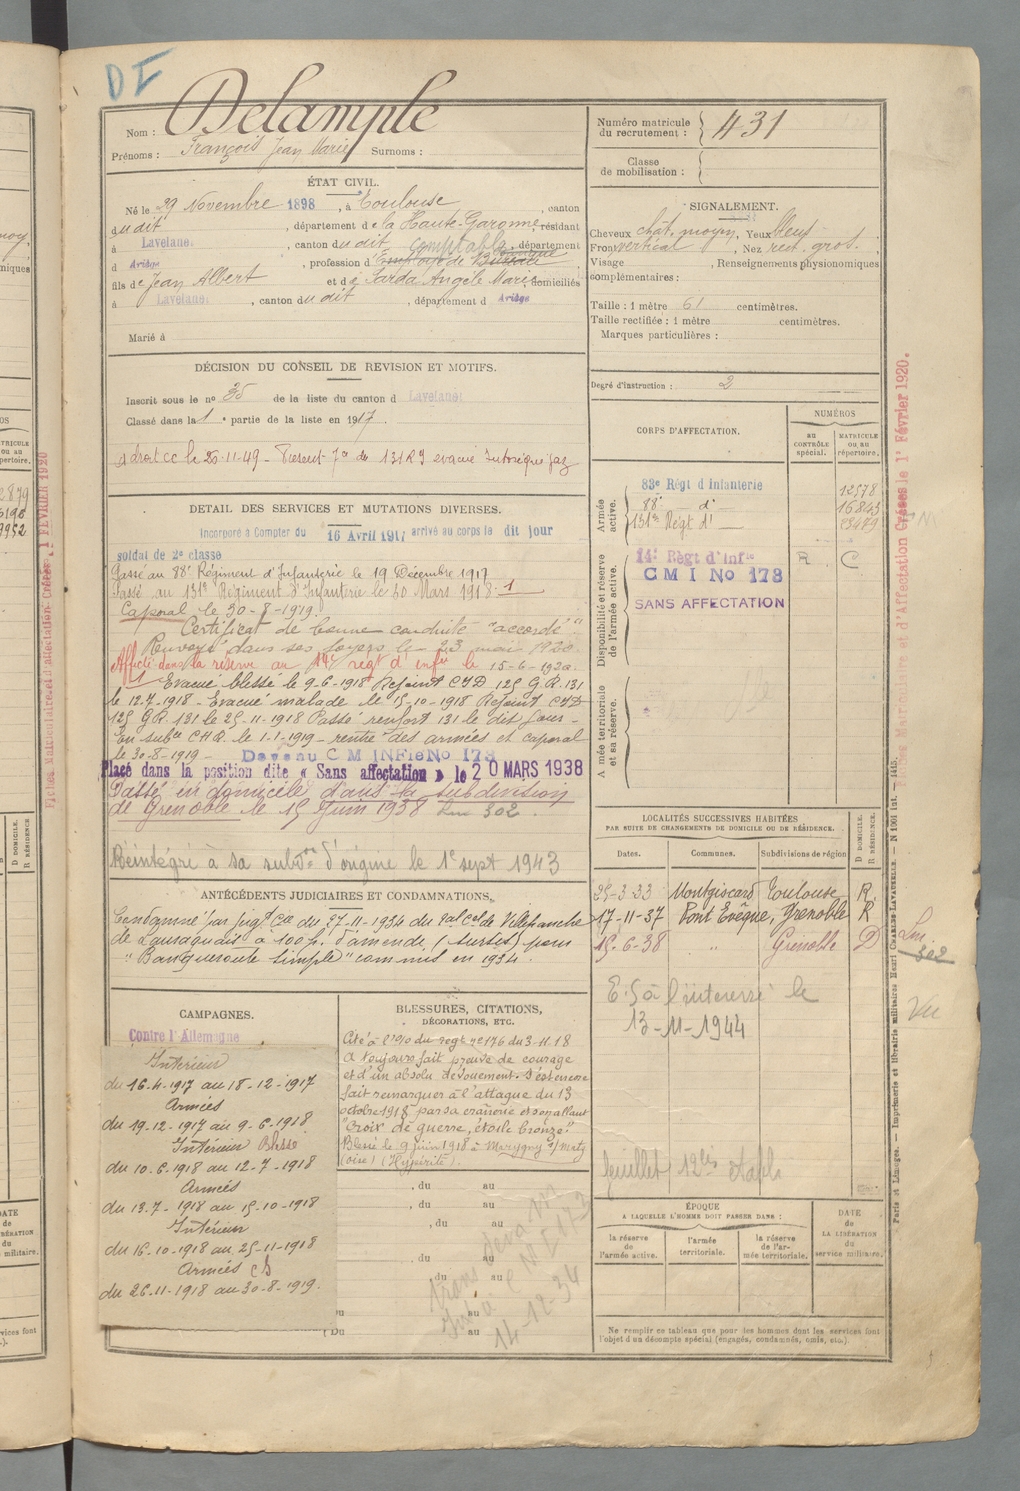 DE
Nom : Delample
Prénoms : François Jean Marie Surnoms :
Numéro matricule du recrutement : 431
Classe de mobilisation :
ÉTAT CIVIL.
Né le 29 Novembre 1898, à Toulouse, canton
dudit, département de la Haute-Garonne, résidant
à Lavelanet, canton dudit, comptable, département
d Ariège, profession d'employé de Bureau
fils de Jean Albert et de Sarda Angèle Marie domiciliés
à Lavelanet, canton dudit, département d Ariège
Marié à
SIGNALEMENT.
Cheveux chât. moyen, Yeux bleus
Front vertical, Nez rect. gros.
Visage , Renseignements physionomiques
complémentaires :
Taille : 1 mètre 61 centimètres.
Taille rectifiée : 1 mètre centimètres.
Marques particulières :
Degré d'instruction : 2
DÉCISION DU CONSEIL DE REVISION ET MOTIFS.
Inscrit sous le n° 35 de la liste du canton d Lavelanet
Classé dans la 1e partie de la liste en 1917.
A droit CC le 20-11-49 - 131 RI evacué gaz
DETAIL DES SERVICES ET MUTATIONS DIVERSES.
Incorporé à Compter du 16 Avril 1917 arrivé au corps le dit jour
soldat de 2e classe
Passé au 88e Régiment d'Infanterie le 19 Décembre 1917
Passé au 131e Régiment d'Infanterie le 30 Mars 1918. 1
Caporal le 30-8-1919.
Certificat de bonne conduite "accordé".
Renvoyé dans ses foyers le 23 mai 1920.
Affecté dans la réserve au 14e régt d'infie le 15-6-1920.
1 Evacué blessé le 9-6-1918 Rejoint CID 125 G.R. 131
le 12-7-1918 - Evacué malade le 15-10-1918 Rejoint CID
125 G.R. 131 le 25-11-1918 Passé renfort 131 le dit jour -
En subce C.H.R. le 1-1-1919 - rentré des armées et caporal
le 30-8-1919 - Devenu C M INFie No 178
Placé dans la position dite « Sans affectation » le 20 MARS 1938
Passé en domicile dans la subdivision
de Grenoble le 15 Juin 1938 Lm 302.
Réintégré à sa subdon d'origine le 1e sept 1943
CORPS D'AFFECTATION.
NUMÉROS
au CONTRÔLE spécial.
MATRICULE ou au répertoire.
Armée active.
83e Régt d infanterie 12578
88e d° 16843
131e Régt d° 23479
Disponibilité et réserve de l'armée active.
14e Régt d'Infie R. C
C M I No 178
SANS AFFECTATION
Armée territoriale et sa réserve.
Fiches Matriculaire et d'Affectation Créées le 1er Février 1920.
ANTÉCÉDENTS JUDICIAIRES ET CONDAMNATIONS.
Condamné par jugt Cre du 27-11-1934 du bal Cel de Villefranche
de Lauraguais à 100 f. d'amende (sursis) pour
"Banqueroute simple" commis en 1934.
LOCALITÉS SUCCESSIVES HABITÉES
PAR SUITE DE CHANGEMENTS DE DOMICILE OU DE RÉSIDENCE.
Dates. Communes. Subdivisions de région D DOMICILE. R RÉSIDENCE.
25-3-33 Montgiscard Toulouse R
17-11-37 Pont Evêque, Grenoble R
15-6-38 " Grenoble D
Lm 302
Vu
E.S à l'intéressé le
13-11-1944
feuillet 12bis établi
CAMPAGNES.
Contre l'Allemagne
Intérieur
du 16-4-1917 au 18-12-1917
Armées
du 19-12-1917 au 9-6-1918
Intérieur Blessé
du 10-6-1918 au 12-7-1918
Armées
du 13-7-1918 au 15-10-1918
Intérieur
du 16-10-1918 au 25-11-1918
Armées CS
du 26-11-1918 au 30-8-1919.
BLESSURES, CITATIONS,
DÉCORATIONS, ETC.
Cité à l'o/o du régt n° 176 du 3-11-18
A toujours fait preuve de courage
et d'un absolu dévouement. S'est encore
fait remarquer à l'attaque du 13
octobre 1918 par sa crânerie et son allant
"Croix de guerre, étoile bronze"
Blessé le 9 juin 1918 à Marquigny s/ Matz
(Oise) (Hypérite).
, du au
, du au
, du au
, du au
du au
au
Du au
14-12-34
ÉPOQUE
A LAQUELLE L'HOMME DOIT PASSER DANS :
la réserve de l'armée active.
l'armée territoriale.
la réserve de l'armée territoriale.
DATE de LA LIBÉRATION du service militaire.
Ne remplir ce tableau que pour les hommes dont les services font
l'objet d'un décompte spécial (engagés, condamnés, omis, etc.).
Paris et Limoges. — Imprimerie et librairie militaires Henri CHARLES-LAVAUZELLE. — N 1001 int. — 1415.